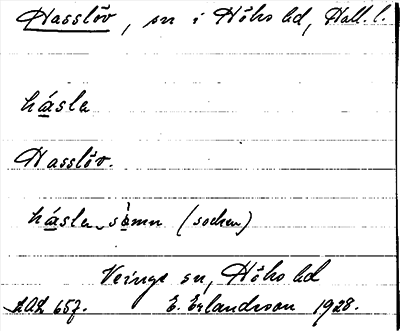 Hasslöv, sn i Höks hd, Hall. l.
hásla
Hasslöv.
hásla sòmn (socken)
Veinge sn, Höks hd
AAL 657. E. Erlandsson 1928.